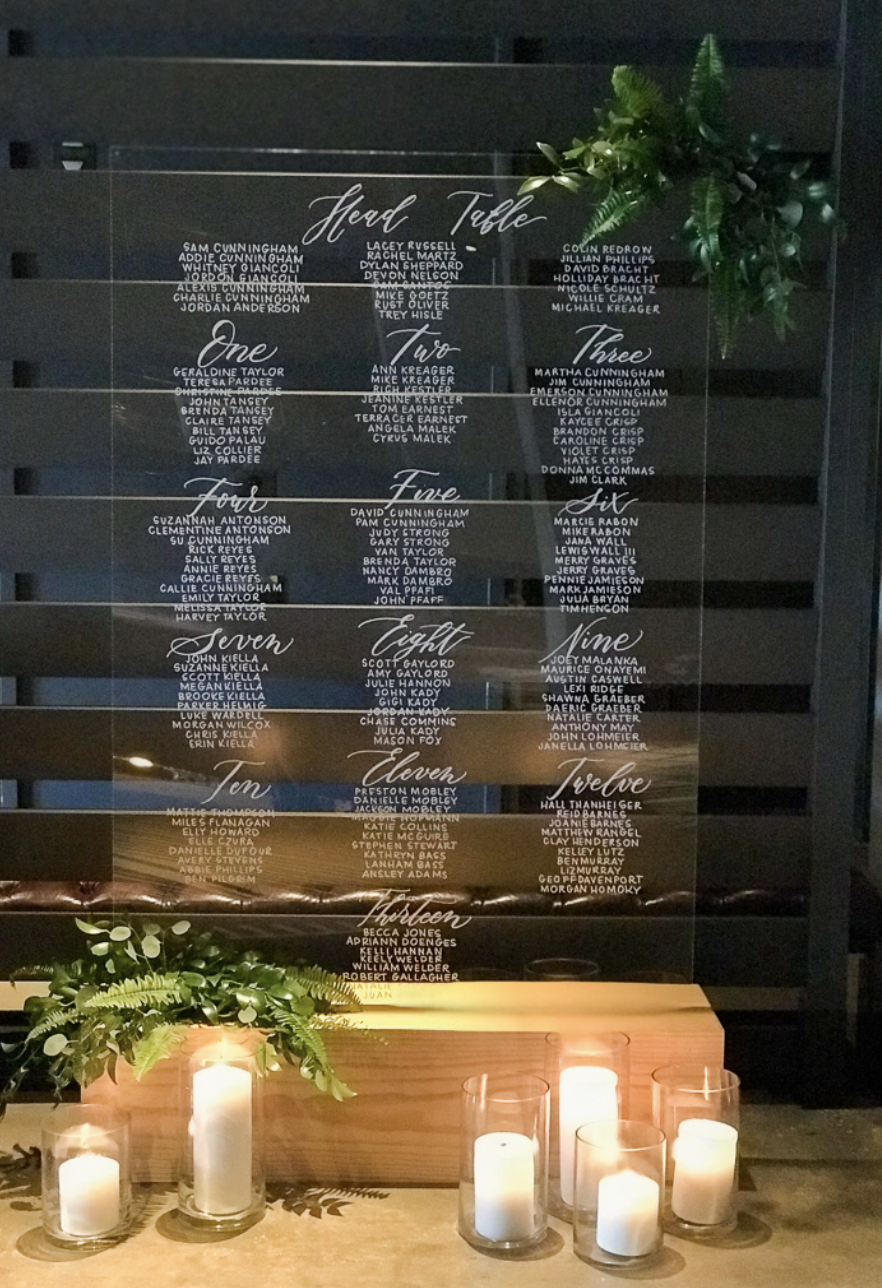 Head Table
SAM CUNNINGHAM
ADDIE CUNNINGHAM
WHITNEY GIANCOLI
JORDON GIANCOLI
ALEXIS CUNNINGHAM
CHARLIE CUNNINGHAM
JORDAN ANDERSON
LACEY RUSSELL
RACHEL MARTZ
DYLAN SHEPPARD
DEVON NELSON
SAM SANTOS
MIKE GOETZ
RUST OLIVER
TREY HISLE
COLIN REDROW
JILLIAN PHILLIPS
DAVID BRACHT
HOLLIDAY BRACHT
NICOLE SCHULTZ
WILLIE CRAM
MICHAEL KREAGER
One
GERALDINE TAYLOR
TERESA PARDEE
CHRISTINE PARDEE
JOHN TANSEY
BRENDA TANSEY
CLAIRE TANSEY
BILL TANSEY
GUIDO PALAU
LIZ COLLIER
JAY PARDEE
Two
ANN KREAGER
MIKE KREAGER
RICH KESTLER
JEANINE KESTLER
TOM EARNEST
TERRACER EARNEST
ANGELA MALEK
CYRUS MALEK
Three
MARTHA CUNNINGHAM
JIM CUNNINGHAM
EMERSON CUNNINGHAM
ELLENOR CUNNINGHAM
ISLA GIANCOLI
KAYCEE CRISP
BRANDON CRISP
CAROLINE CRISP
VIOLET CRISP
HAYES CRISP
DONNA MCCOMMAS
JIM CLARK
Four
SUZANNAH ANTONSON
CLEMENTINE ANTONSON
SU CUNNINGHAM
RICK REYES
SALLY REYES
ANNIE REYES
GRACIE REYES
CALLIE CUNNINGHAM
EMILY TAYLOR
MELISSA TAYLOR
HARVEY TAYLOR
Five
DAVID CUNNINGHAM
PAM CUNNINGHAM
JUDY STRONG
GARY STRONG
VAN TAYLOR
BRENDA TAYLOR
NANCY DAMBRO
MARK DAMBRO
VAL PFAFF
JOHN PFAFF
Six
MARCIE RABON
MIKE RABON
JANA WALL
LEWIS WALL III
MERRY GRAVES
JERRY GRAVES
PENNIE JAMIESON
MARK JAMIESON
JULIA BRYAN
TIM HENSON
Seven
JOHN KIELLA
SUZANNE KIELLA
SCOTT KIELLA
MEGAN KIELLA
BROOKE KIELLA
PARKER HELMIG
LUKE WARDELL
MORGAN WILCOX
CHRIS KIELLA
ERIN KIELLA
Eight
SCOTT GAYLORD
AMY GAYLORD
JULIE HANNON
JOHN KADY
GIGI KADY
JORDAN KADY
CHASE COMMINS
JULIA KADY
MASON FOX
Nine
JOEY MALANKA
MAURICE ONAYEMI
AUSTIN CASWELL
LEXI RIDGE
SHAWNA GRAEBER
DAERIC GRAEBER
NATALIE CARTER
ANTHONY MAY
JOHN LOHMEIER
JANELLA LOHMEIER
Ten
MATTIE THOMPSON
MILES FLANAGAN
ELLY HOWARD
ELLE CZURA
DANIELLE DUFOUR
AVERY STEVENS
ABBIE PHILLIPS
BEN PILGRIM
Eleven
PRESTON MOBLEY
DANIELLE MOBLEY
JACKSON MOBLEY
MAGGIE HOFMANN
KATIE COLLINS
KATIE MCGUIRE
STEPHEN STEWART
KATHRYN BASS
LANHAM BASS
ANSLEY ADAMS
Twelve
HALL THANHEISER
REID BARNES
JOANIE BARNES
MATTHEW RANGEL
CLAY HENDERSON
KELLEY LUTZ
BEN MURRAY
LIZ MURRAY
GEOFF DAVENPORT
MORGAN HOMOKY
Thirteen
BECCA JONES
ADRIANN DOENGES
KELLI HANNAN
KEELY WELDER
WILLIAM WELDER
ROBERT GALLAGHER
NATALIE
JUAN